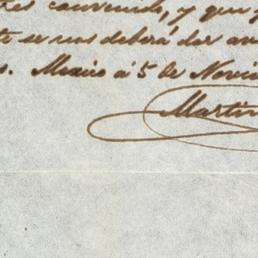 convenido, y que
te se nos deberá dar
s. Mexico á 5 de Novi
Martin